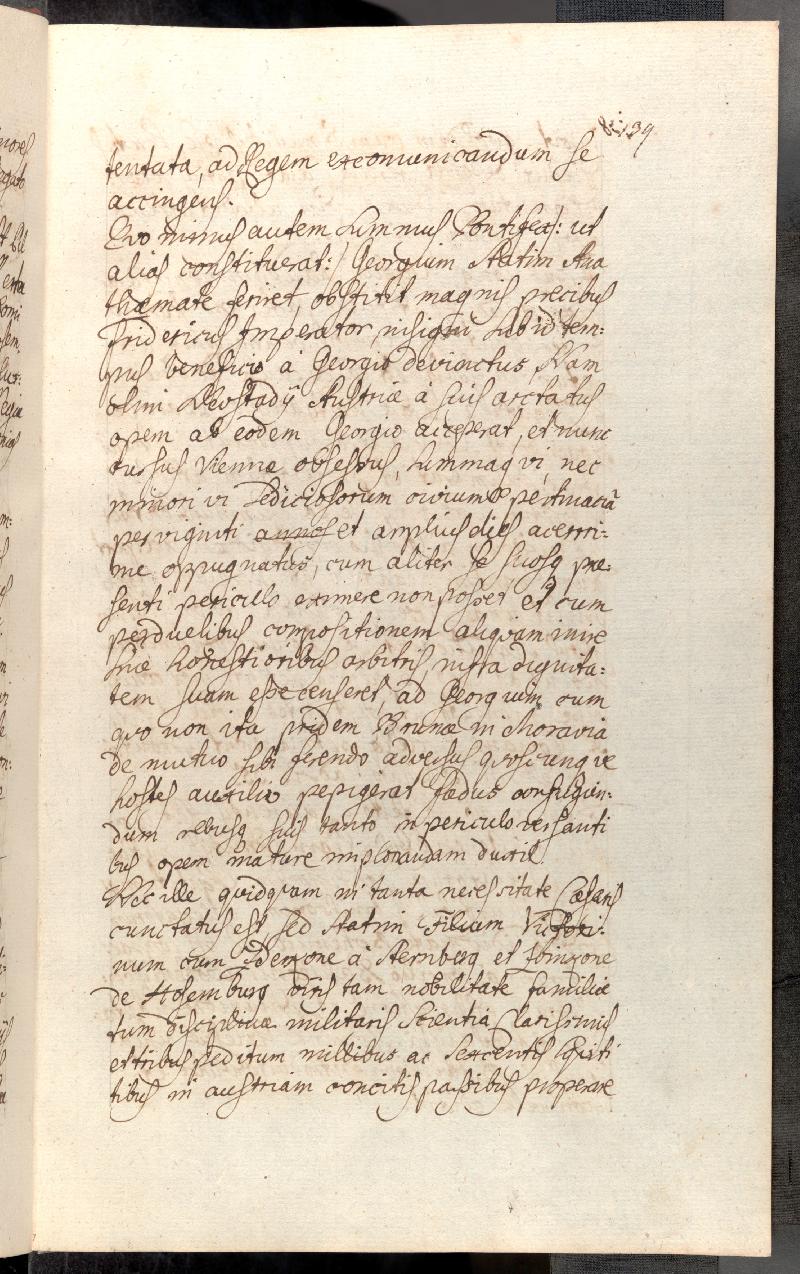 139
tentata, ad Regem excomunicandum se
accingens.
Quo minus autem Summus Pontifex /: ut
alias constituerat: / Georgium statim Ana
thæmate feriret, obstitit magnis precibus
Fridericus Imperator, insigni sub id tem:
pus beneficio à Georgio devinctus, Nam
olim Neostadÿ Austriæ à suis arctatus
opem ab eodem Georgio acceperat, et nunc
rursus Viennæ obsessus, summaq vi, nec
minori vi Sediciosorum civium pertinaciâ
per viginti annos et amplius dies acerri:
me oppugnatus, cum aliter se suosq præ:
senti periculo eximere non posset et cum
perduelibus compositionem aliquam inire
sine honestioribus arbitris, infra dignita:
tem suam esse censeret, ad Georgium cum
quo non ita pridem Brunæ in Moravia
de mutuo sibi ferendo adversus quoscunque
hostes auxilio pepigerat fædus confugien:
dum rebusq suis tanto in periculo versanti
bus opem mature implorandam duxit.
Nec ille quidquam in tanta necessitate Cæsaris
cunctatus est, sed statim Filium Victori:
num cum Zdenкone à Sternberg et
de Hosemburg viris tam nobilitate familiæ
tum disciplinæ militaris Scientia Clarissimis
et tribus peditum millibus ac sexcentis Equiti
tibus in austriam concitis passibus properare